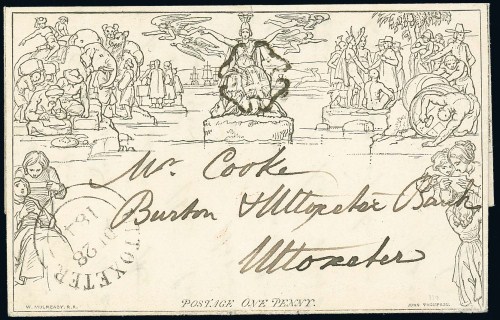 Mr. Cooke
Burton & Uttoxeter Bank
Uttoxeter
UTTOXETER
28
184
POSTAGE ONE PENNY.
W. MULREADY. R.A.
JOHN THOMPSON.